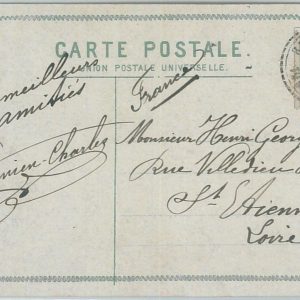 CARTE POSTALE.
UNION POSTALE UNIVERSELLE.
meilleurs
amitiés
France
Charles
Monsieur Henri Georg
Rue Villedieu
St Etienn
Loire